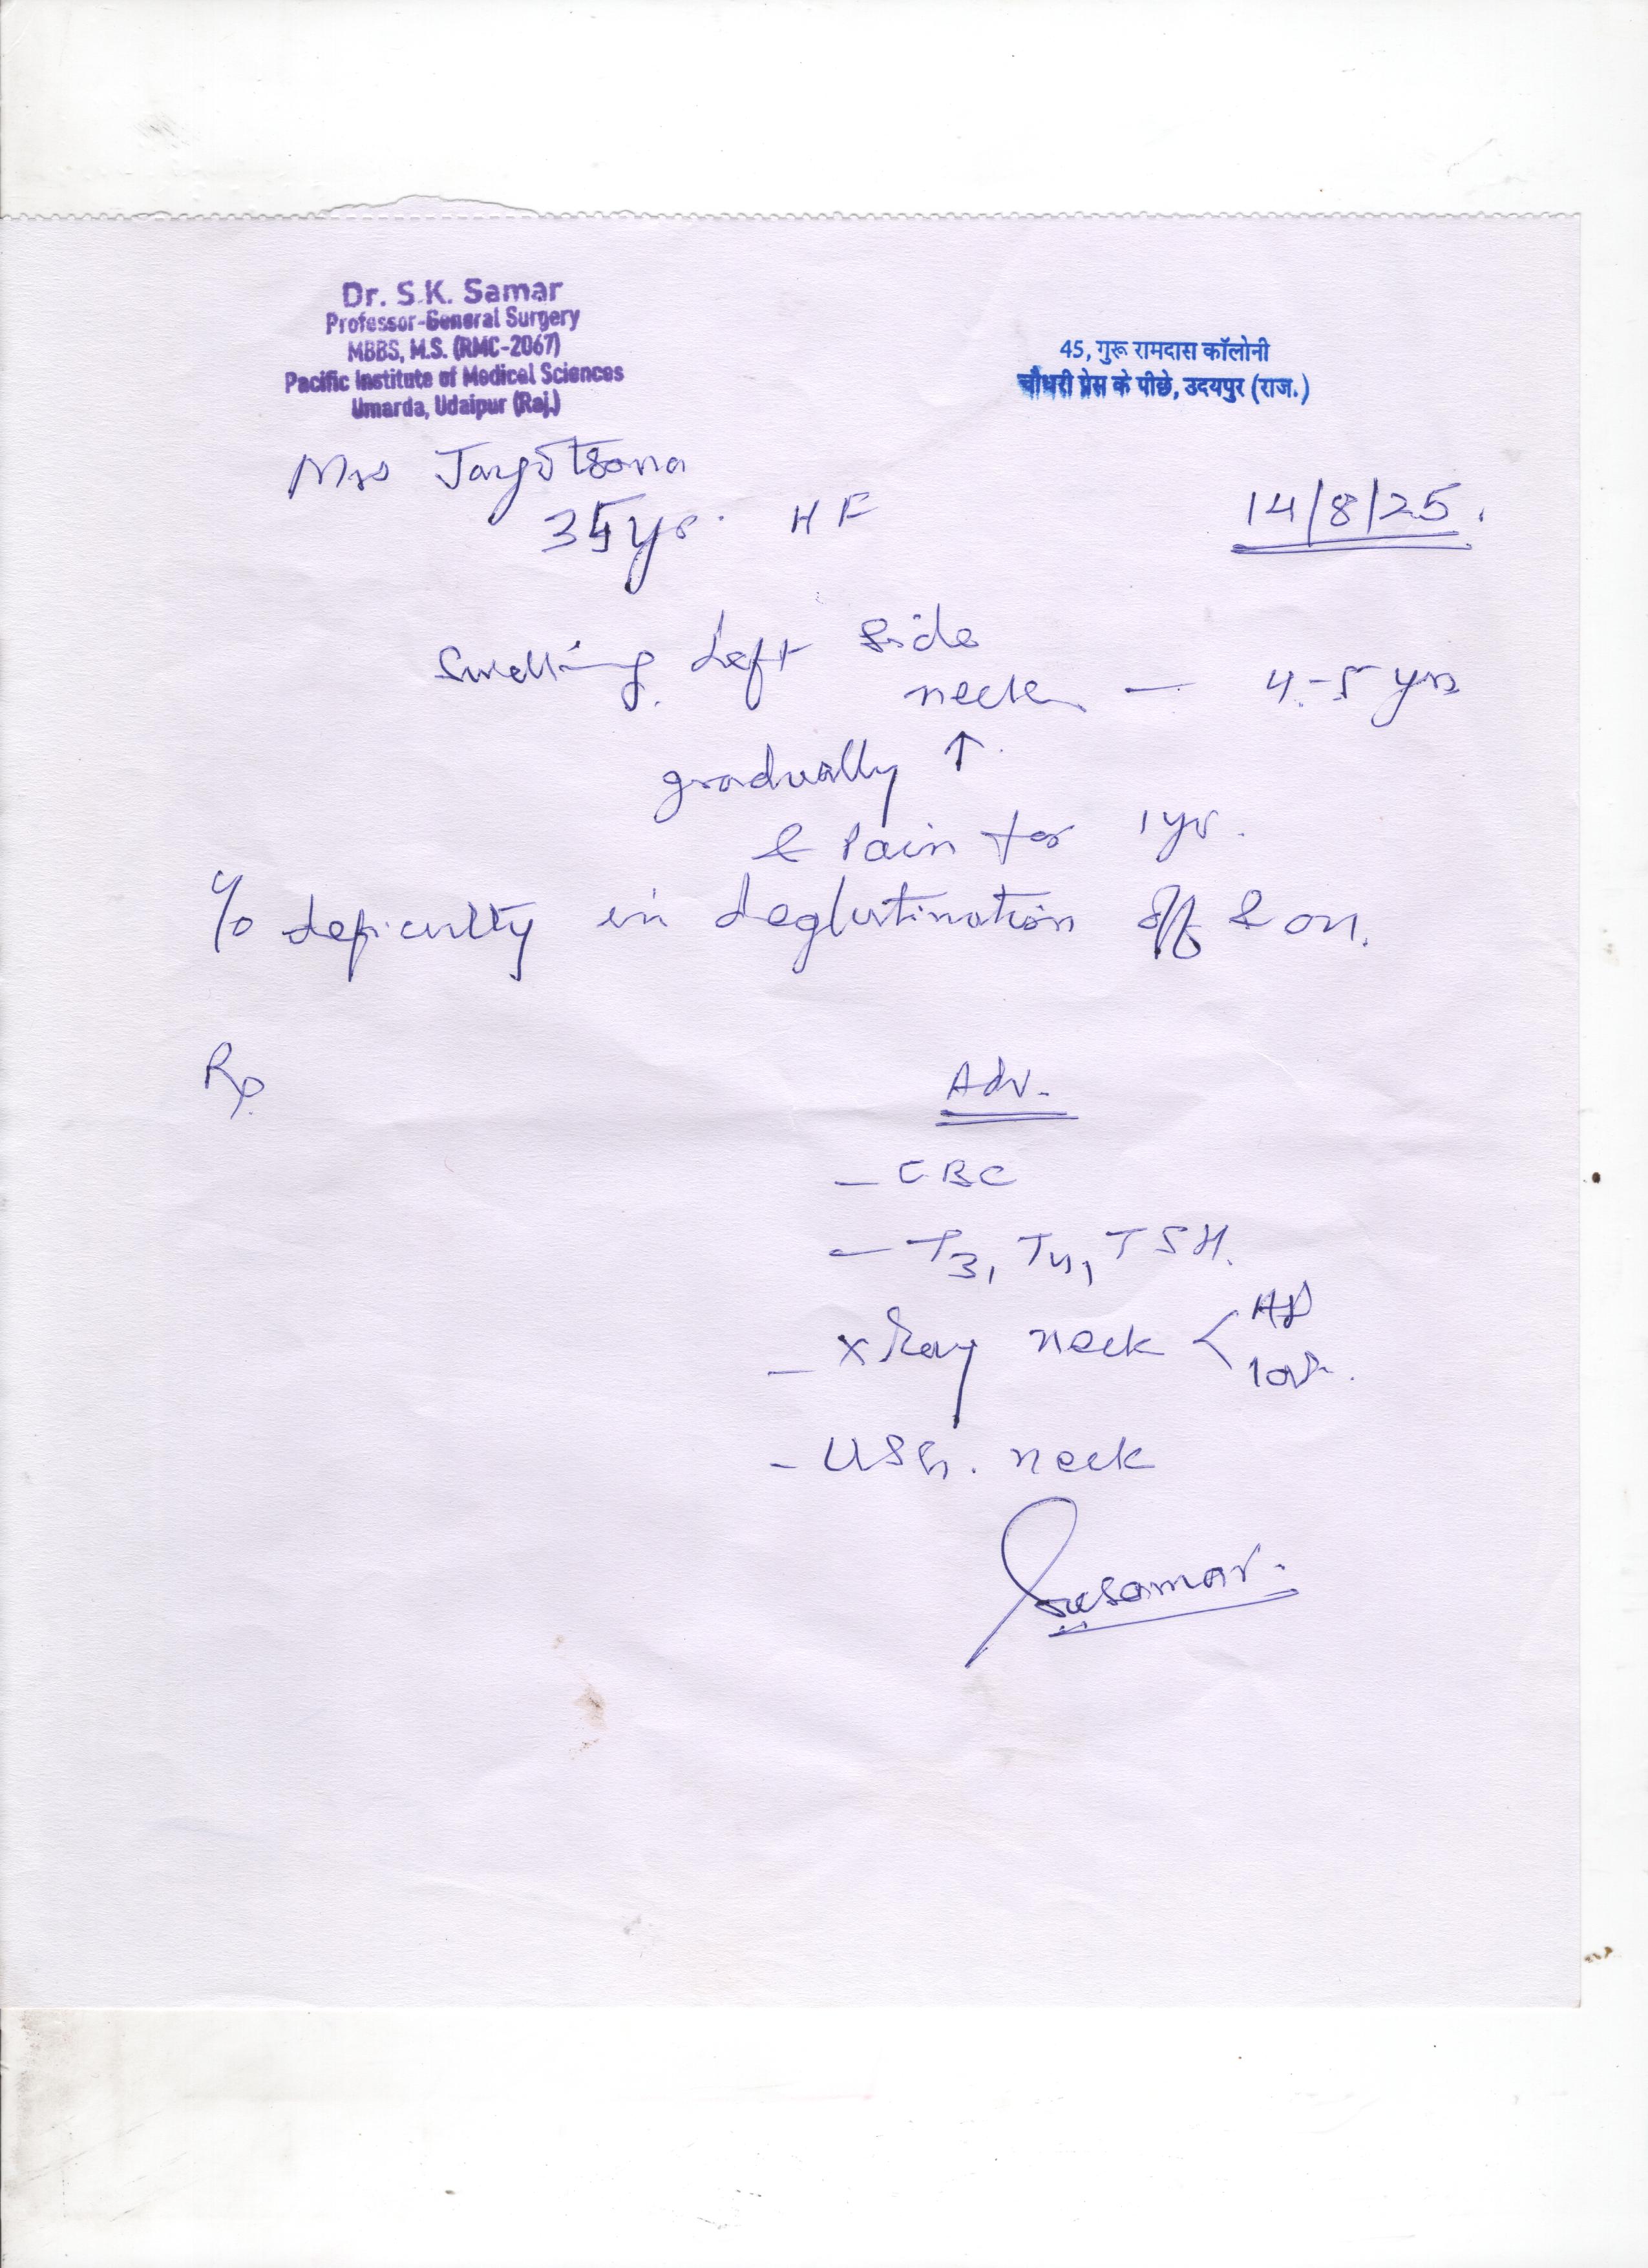 Dr. S.K. Samar
Professor-General Surgery
MBBS, M.S. (RMC-2067)
Pacific Institute of Medical Sciences
Umarda, Udaipur (Raj.)
45, गुरू रामदास कॉलोनी
चौधरी प्रेस के पीछे, उदयपुर (राज.)
Mrs Jayotsona
35 yr. H F
14/8/25.
Swelling Left Side
neck — 4-5 yrs
gradually ↑
& Pain for 1 yr.
C/o deficulty in deglutination off & on.
Rp
Adv.
- CBC
- T3, T4, TSH.
- X Ray neck < AP
lat.
- USG. neck
SKSamar.